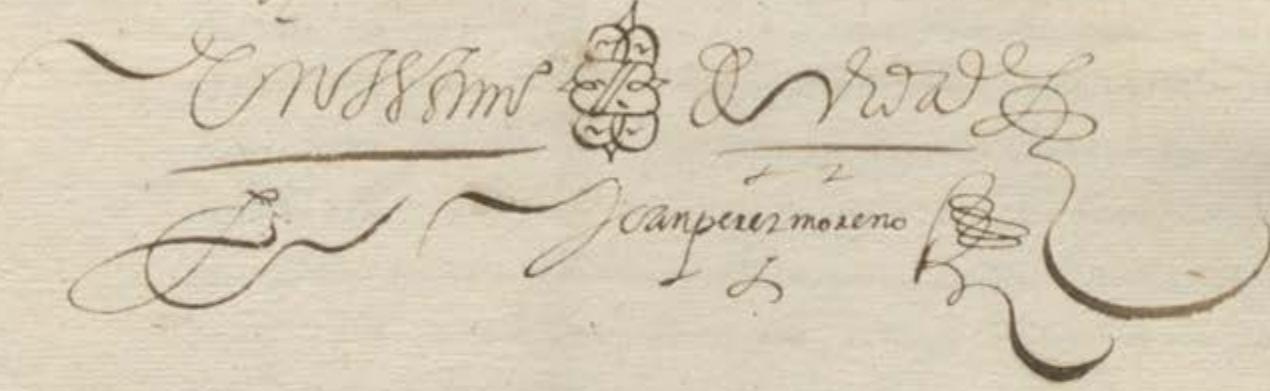 En testimo de verdad
Joan perez moreno